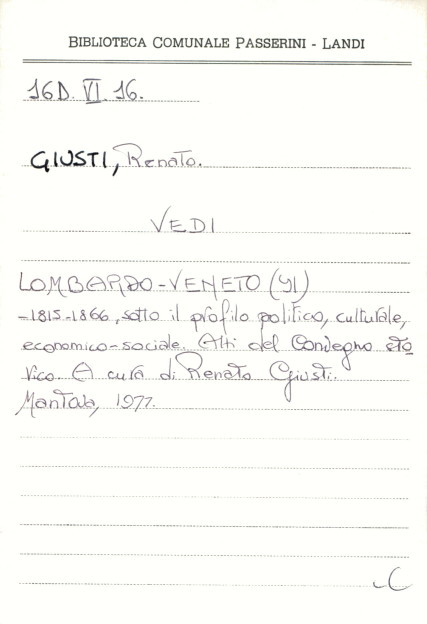 BIBLIOTECA COMUNALE PASSERINI - LANDI
16D. VI. 16.
GIUSTI, Renato.
VEDI
LOMBARDO-VENETO (Il)
-1815-1866, sotto il profilo politico, culturale,
economico-sociale. Atti del Convegno sto
rico. A cura di Renato Giusti.
Mantova, 1977.